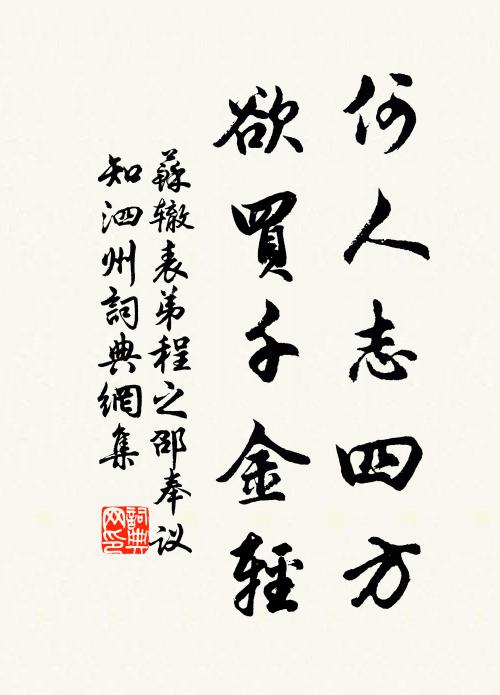 何人志四方
欲買千金輕
蘇辙表弟程之邵奉议
知泗州詞典網集
詞典网印